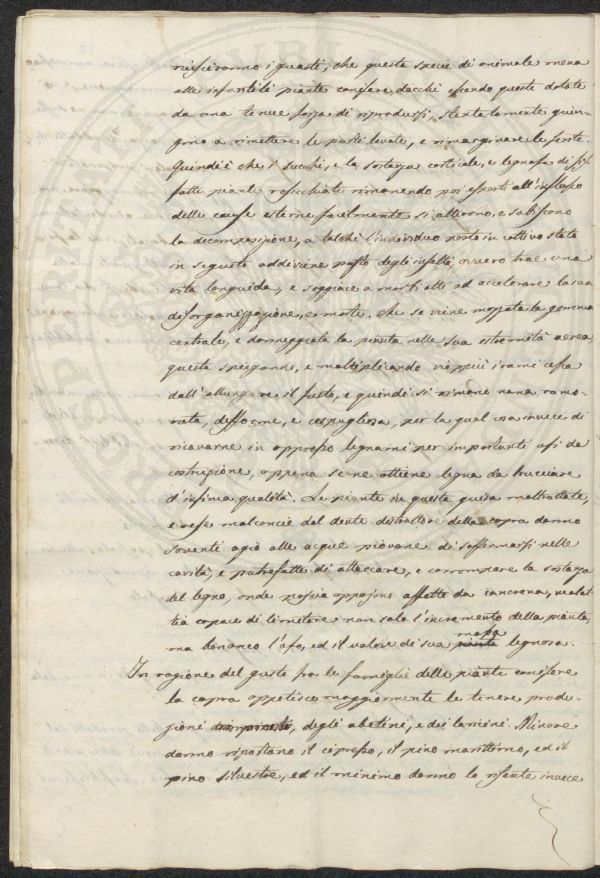 riusciranno i guasti, che questa specie di animale mena
alle infantili piante conifere, dacchì essendo queste dotate
da una tenue forza di riprodursi, stentatamente giun-
gono a rimettere le parti levate, e rimarginare le ferite.
Quindi è che i succhi, e la sostanza corticale, e legnosa di sif-
fatte piante rosicchiate rimanendo poi esposti all'influsso
delle cause esterne facilmente si alterano, e subiscono
la decomposizione, a talchè l'individuo posto in cattivo stato
in seguito addiviene pasto degli insetti, ovvero trae una
vita languida, e soggiace a morbi atti ad accelerare la sua
disorganizzazione, e morte. Che se viene mozzata la gemma
centrale, e danneggiata la pianta nella sua estremità aerea,
questa spiegando, e moltiplicando vieppiù i rami cessa
dall'allungare il fusto, e quindi si rimane nana, ramo-
ruta, difforme, e cespugliosa, per la qual cosa invece di
ricavarne in appresso legnami per importanti usi da
costruzione, appena se ne ottiene legna da bruciare
d'infima qualità. Le piante in questa guisa maltrattate,
e rese malconcie dal dente distruttore della capra danno
soventi agio alle acque piovane di soffermarsi nelle
cavità, e putrefatte di attaccare, e corrompere la sostanza
del legno, onde poscia appajono affette da cancrena, malat-
tia capace di limitare non solo l'incremento della pianta,
massa
ma benanco l'uso, ed il valore di sua pianta legnosa.
In ragione del gusto fra le famiglie delle piante conifere
la capra appetisce maggiormente le tenere produ-
zioni degli abetini, e dei laricini. Minore
danno risportano il cipresso, il pino marittimo, ed il
pino silvestre, ed il minimo danno lo risente invece